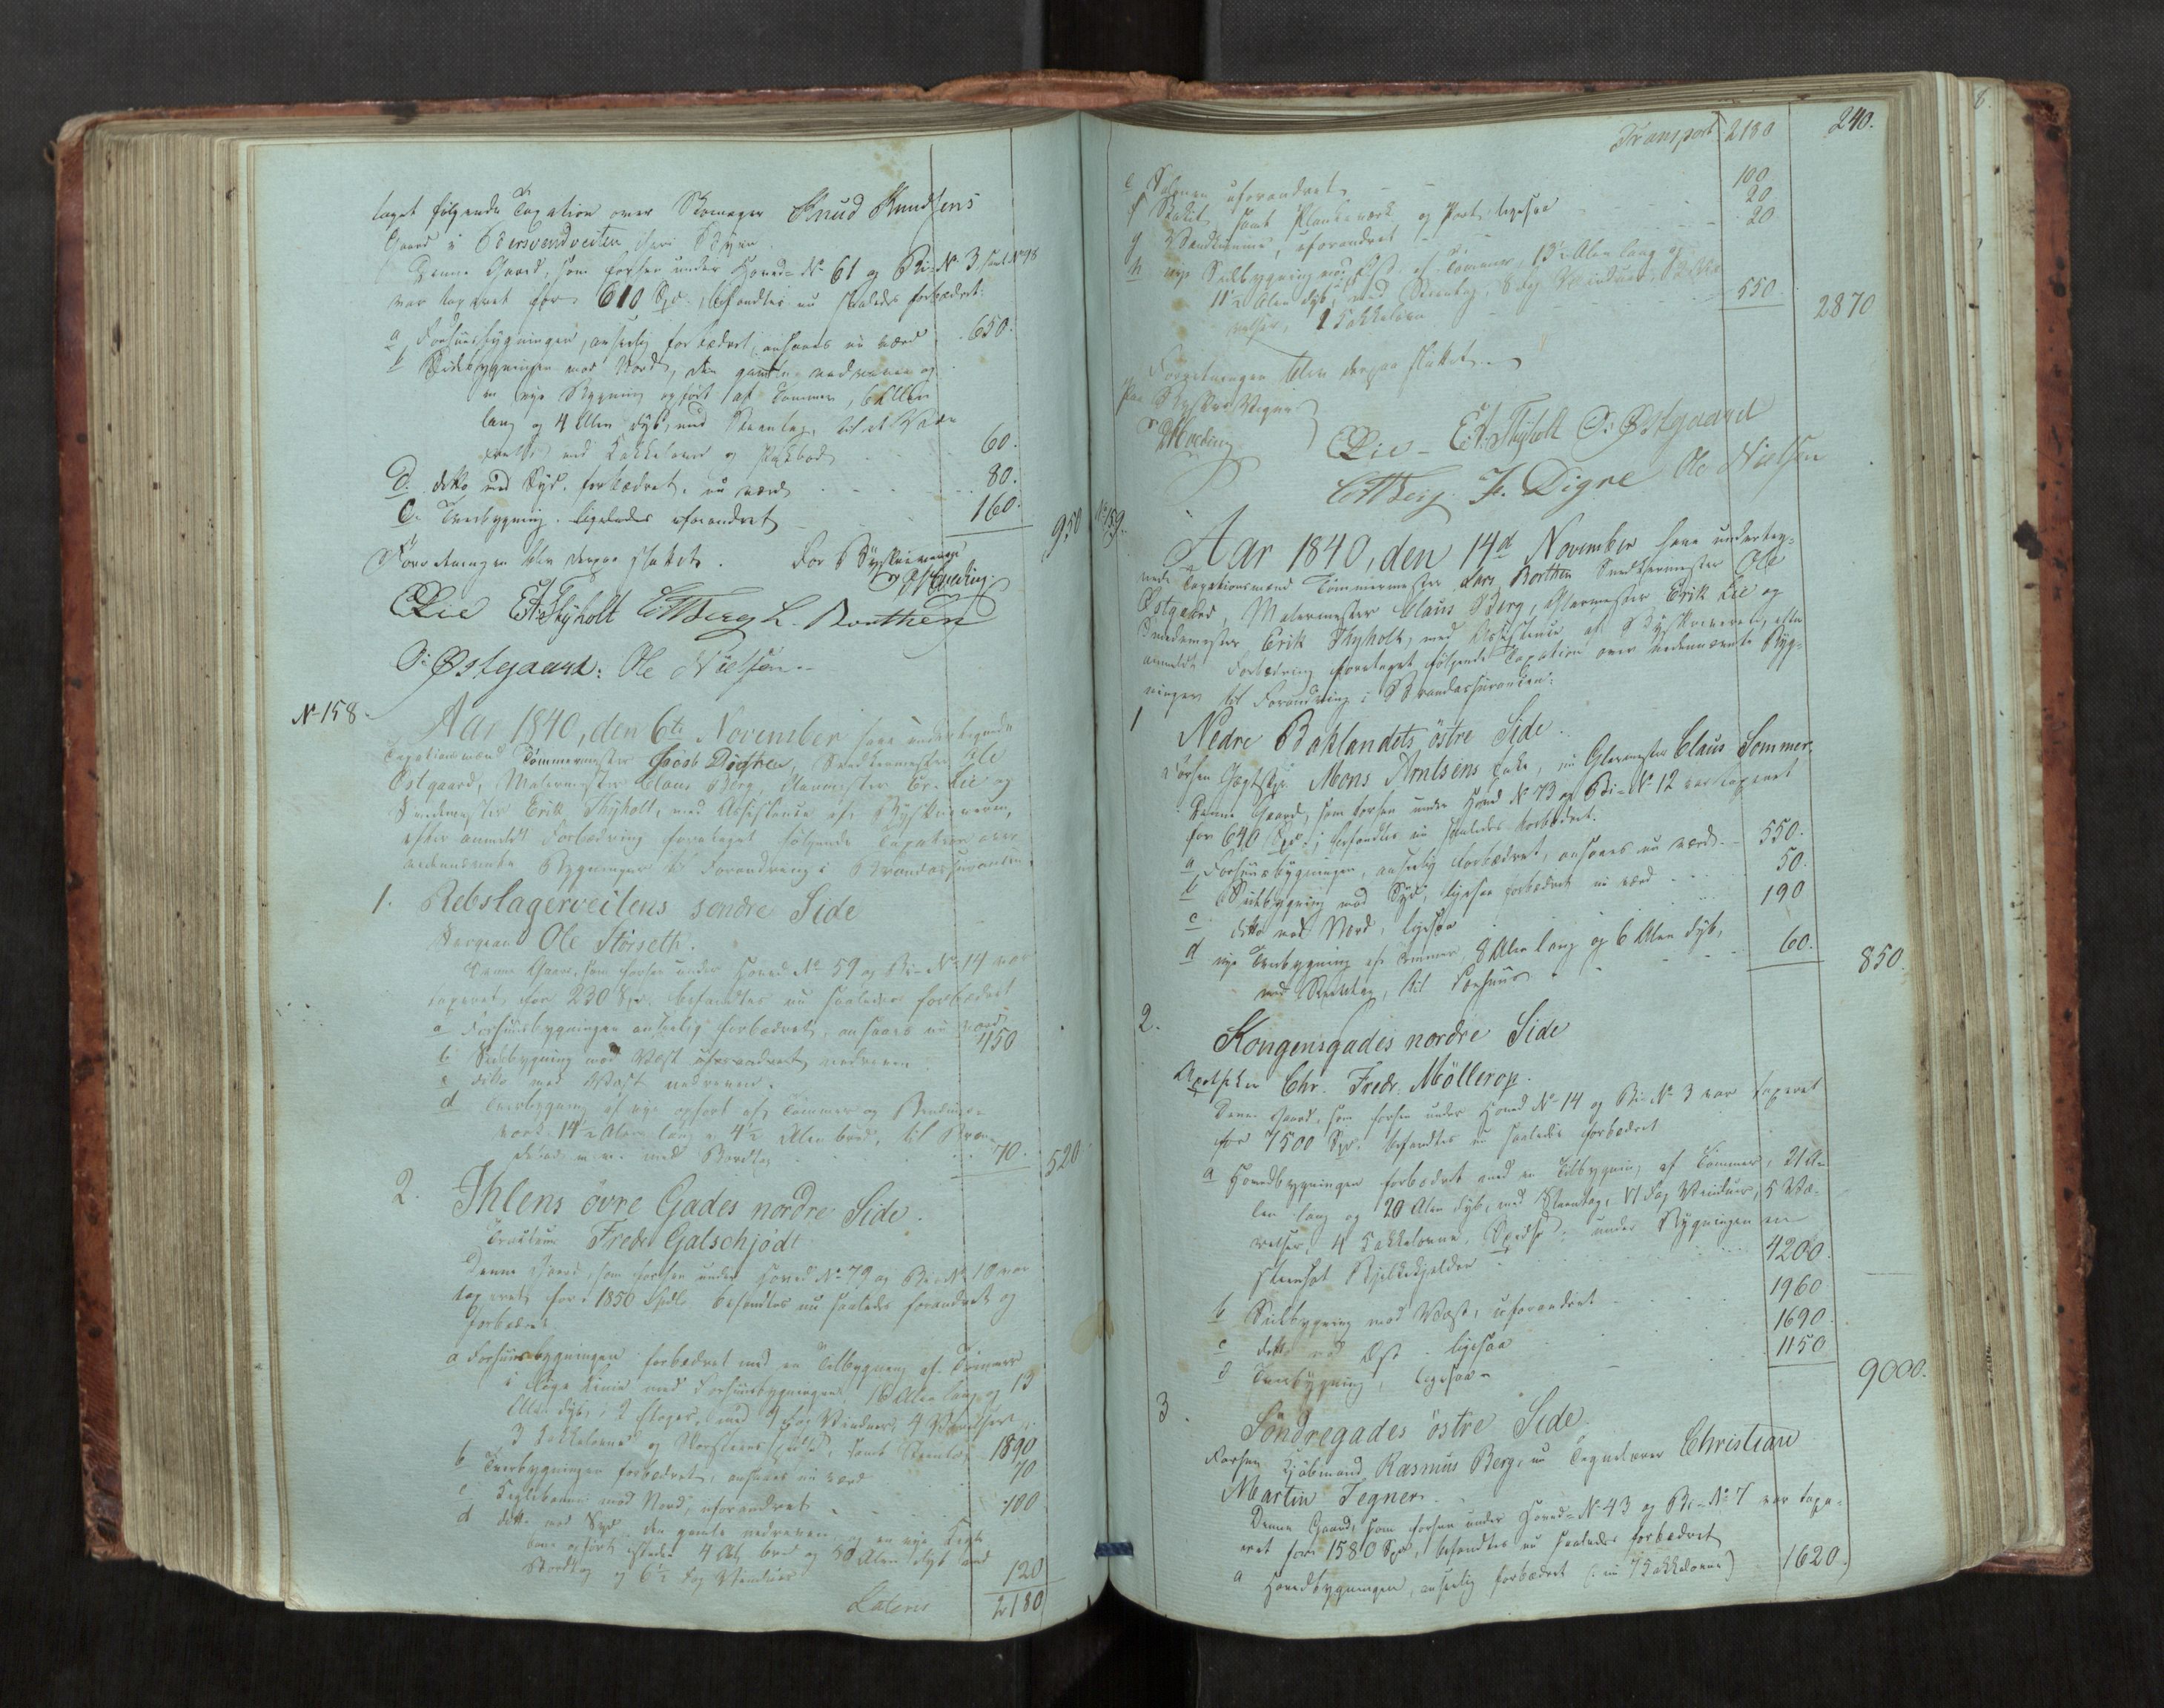 taget følgende Taxation over Skomager Knud Knudsens
Gaard i Odersvendveiten her i Byen.
Denne Gaard, som forhen under Hoved-No 61 og Bi-No 3
var taxeret for 610 Spd., befandtes nu saaledes forbedret:
a Forhuusbygningen, anseelig forbedret, ansaaes nu værd 650.
b Sidebygningen mod Nord, den gamle nedreven og
en nye Bygning opført af Tømmer, 6 Alen
lang og 4 Alen dyb, med Steentag, til et Væ-
relse med Kakkelovn og 60.
d. ditto mod Syd, forbedret, nu værd 80.
c. Tverbygning uforandret 160.
950
Forretningen blev derpaa sluttet. For Byskriveren
ELie E: Thyholt C M Berg L. Borthen
O: Østgaard: Ole Nielsen
No 158.
Aar 1840, den 6te November have undertegnede
Taxationsmænd Tømmermester Jacob Digre, Snedkermester Ole
Østgaard, Malermester Claus Berg, Glarmester Er. Lie og
Smedemester Erik Thyholt, med Assistence af Byskriveren,
efter anmeldt Forbedring foretaget følgende Taxation over
nedennævnte Bygninger til Forandring i Brandassurancen:
1. Rebslagerveitens søndre Side
Sergeant Ole Størseth.
Denne Gaard, som forhen under Hoved No 59 og Bi-No 14 var
taxeret for 230 Spd. befandtes nu saaledes forbedret
a Forhuusbygningen anseelig forbedret, ansaaes nu værd 450
b Sidebygning mod Vest uforandret nedreven
c ditto mod Øst nedreven.
d Tverbygning af nye opført af Tømmer og Bindings-
værk 14½ Alen lang og 4½ Alen bred, til Bræn-
debod m.m. med Bordtag 70. 520
2. Ihlens øvre Gades nordre Side.
Fredr. Galschjødt
Denne Gaard, som forhen under Hoved No 79 og Bi-No 10 var
taxeret for 1850 Spdl. befandtes nu saaledes forandret og
forbedret
a Forhuusbygningen forbedret med en Tilbygning af Tømmer
i lige Linie med Forhuusbygningen 16 Alen lang og 13
Alen dyb, i 2 Etager, med 9 Fag Vinduer, 4 Værelser
3 Kakkelovne og Skorsteens samt Steentag 1890
b Tverbygningen forbedret, ansaaes nu værd 70
c Keglebanen mod Nord, uforandret 100
d ditto mod Syd den gamle nedreven, og en nye Kegle
bane opført isteden 4 Al. bred og 50 Alen dyb med
Bordtag og 6½ Fag Vinduer 120
Latens 2180
Transport 2180 240.
e uforandret 100
f Stakit samt Plankeværk og Port, ligesaa 20
g Vandrenne, uforandret 20
h nye Sidebygning mod Øst, af Tømmer, 13½ Alen lang og
11½ Alen dyb, med Steentag, 8 Fag Vinduer, 2 Væ-
relser, 1 Kakkelovn 550. 2870
Forretningen blev derpaa sluttet.
Paa Byskriverens Vegne
ELie - E: Thyholt O: Østgaard
C M Berg. J. Digre Ole Nielsen
No 159.
Aar 1840, den 14de November have underteg-
nede Taxationsmænd Tømmermester Lars Borthen Snedkermester Ole
Østgaard, Malermester Claus Berg, Glarmester Erik Lie og
Smedemester Erik Thyholt, med Assistence af Byskriveren, efter
anmeldt Forbedring foretaget følgende Taxation over nedennævnte Byg-
ninger til Forandring i Brandassurancen:
1 Nedre Baklandets østre Side.
Forhen Mons Arntsens Enke, nu Glarmester Claus Sommer.
Denne Gaard, som forhen under Hoved No 73 og Bi-No 12 var taxeret
for 640 Spd.; befandtes nu saaledes forbedret.
a Forhuusbygningen, anseelig forbedret, ansaaes nu værd 550.
b Sidebygning mod Syd, ligesaa forbedret nu værd 50.
c ditto mod Nord, ligesaa 190
d nye Tverbygning af Tømmer, 8 Alen lang og 6 Alen dyb,
med Steentag, til Fæhuus 60. 850.
2. Kongensgades nordre Side
Apotheker Chr. Fredr. Möllerop.
Denne Gaard, som forhen under Hoved No 14 og Bi-No 3 var taxeret
for 7500 Spd. befandtes nu saaledes forbedret
a Hovedbygningen forbedret med en Tilbygning af Tømmer, 21 A-
len lang og 20 Alen dyb, med Steentag, 17 Fag Vinduer, 5 Væ-
relser, 4 Kakkelovne, under Bygningen en
steensat Bjelkekjelder 4200.
b Sidebygning mod Vest, uforandret 1960.
c ditto mod Øst - ligesaa 1690.
d Tverbygning, ligesaa 1150
9000.
3. Söndregades östre Side.
Forhen Kjøbmand Rasmus Berg, nu Tegnelærer Christian
Martin Tegner.
Denne Gaard, som forhen under Hoved-No 43 og Bi-No 7 var taxe-
ret for 1580 Spd, befandtes nu saaledes forbedret
a Hovedbygningen, anseelig forbedret (: nu 7 Kakkelovne) 1620.